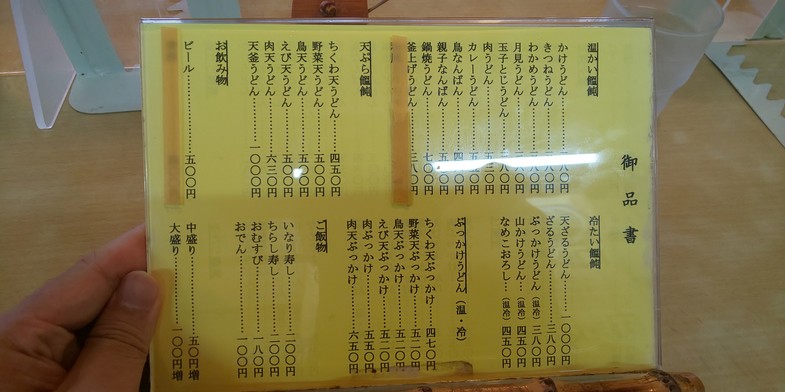 御品書
温かい饂飩
かけうどん
きつねうどん
わかめうどん
月見うどん
玉子とじうどん
肉うどん
カレーうどん
鳥なんばん
親子なんばん
鍋焼うどん……七〇〇円
釜上げうどん……三八〇円
天ぷら饂飩
ちくわ天うどん……四五〇円
野菜天うどん……五〇〇円
鳥天うどん……五〇〇円
えび天うどん……五〇〇円
肉天うどん……六三〇円
天釜うどん……一〇〇〇円
お飲み物
ビール……五〇〇円
冷たい饂飩
天ざるうどん……一〇〇〇円
ざるうどん……三八〇円
ぶっかけうどん（温冷）三八〇円
山かけうどん…（温冷）四五〇円
なめこおろし…（温冷）四五〇円
ぶっかけうどん（温・冷）
ちくわ天ぶっかけ…四七〇円
野菜天ぶっかけ……五二〇円
鳥天ぶっかけ……五二〇円
えび天ぶっかけ……五二〇円
肉ぶっかけ……五五〇円
肉天ぶっかけ……六五〇円
ご飯物
いなり寿し……二〇〇円
ちらし寿し……二〇〇円
おむすび……一八〇円
おでん……一〇〇円
中盛り……五〇円増
大盛り……一〇〇円増